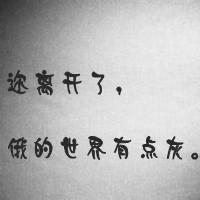 迩离开了，
俄的世界有点灰。